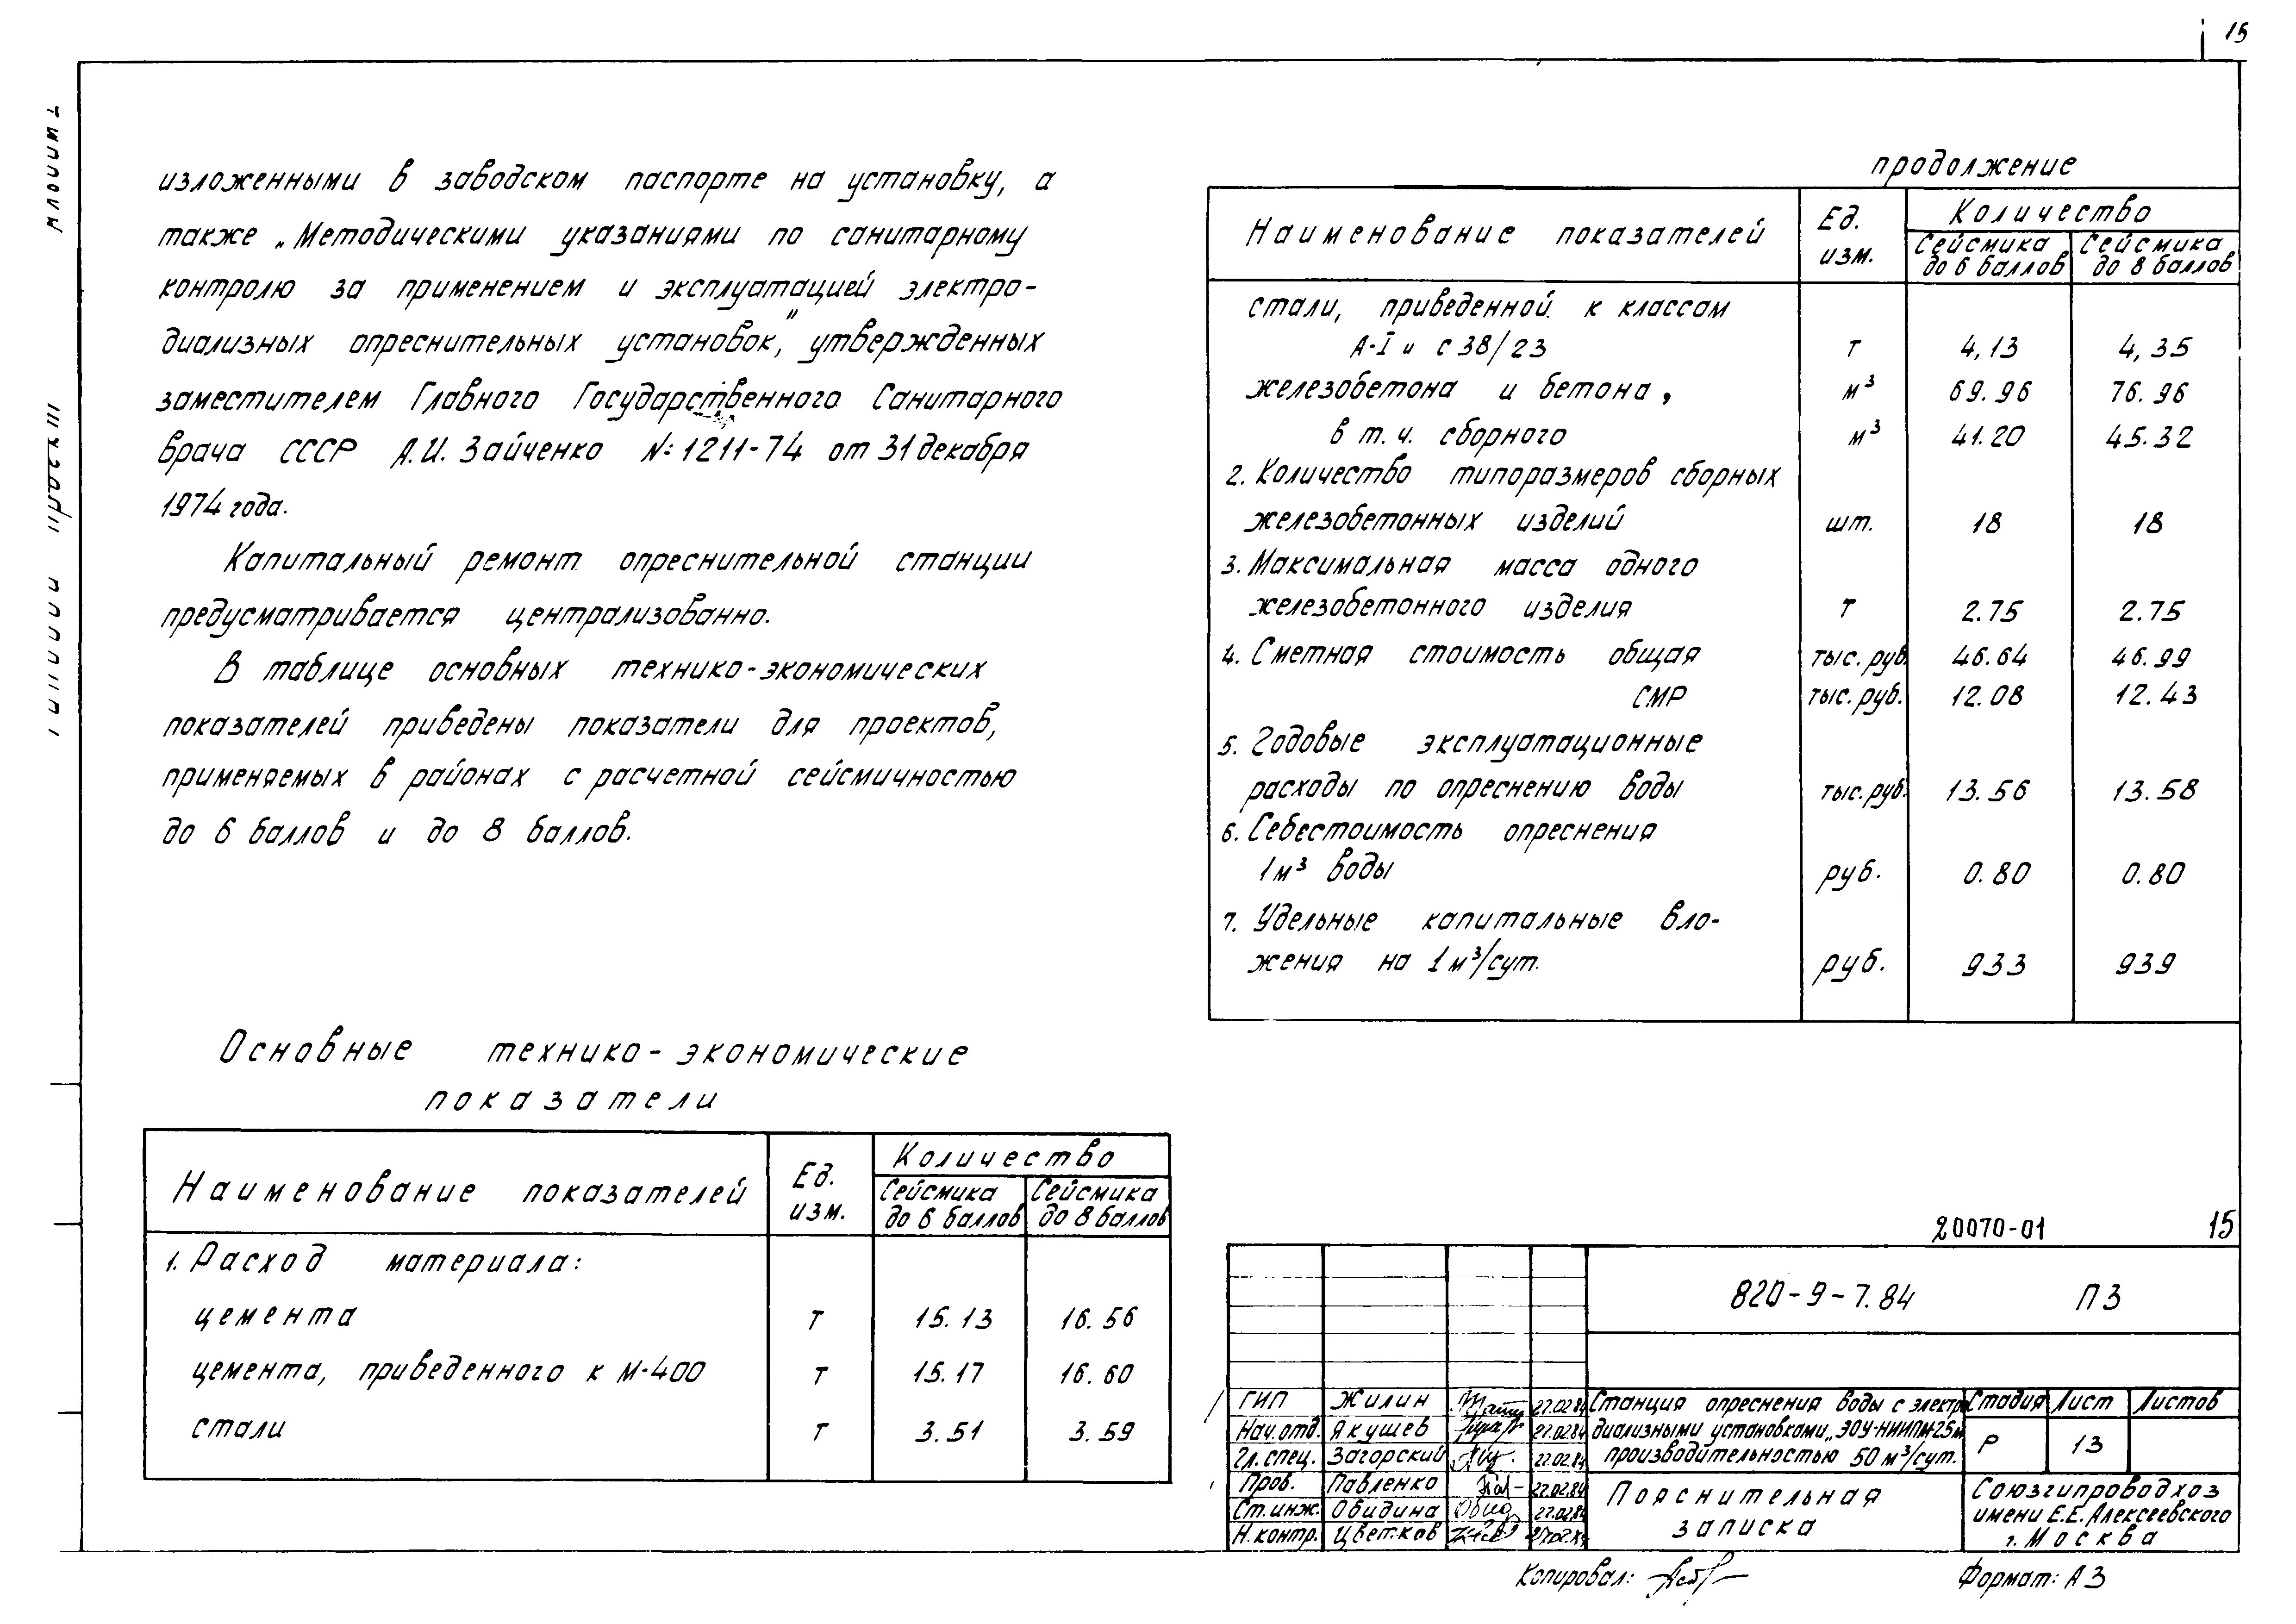 15
изложенными в заводском паспорте на установку, а
также „Методическими указаниями по санитарному
контролю за применением и эксплуатацией электро-
диализных опреснительных установок", утвержденных
заместителем Главного Государственного Санитарного
врача СССР А.И. Зайченко №1211-74 от 31 декабря
1974 года.
Капитальный ремонт опреснительной станции
предусматривается централизованно.
В таблице основных технико-экономических
показателей приведены показатели для проектов,
применяемых в районах с расчетной сейсмичностью
до 6 баллов и до 8 баллов.
Основные технико-экономические
показатели
Наименование показателей Ед. изм. Количество
Сейсмика до 6 баллов Сейсмика до 8 баллов
1. Расход материала:
цемента т 15.13 16.56
цемента, приведенного к М-400 т 15.17 16.60
стали т 3.51 3.59
продолжение
Наименование показателей Ед. изм. Количество
Сейсмика до 6 баллов Сейсмика до 8 баллов
стали, приведенной к классам
А-I и С38/23 т 4,13 4,35
железобетона и бетона, м³ 69.96 76.96
в т.ч. сборного м³ 41.20 45.32
2. Количество типоразмеров сборных
железобетонных изделий шт. 18 18
3. Максимальная масса одного
железобетонного изделия т 2.75 2.75
4. Сметная стоимость общая тыс. руб. 46.64 46.99
СМР тыс. руб. 12.08 12.43
5. Годовые эксплуатационные
расходы по опреснению воды тыс. руб. 13.56 13.58
6. Себестоимость опреснения
1 м³ воды руб. 0.80 0.80
7. Удельные капитальные вло-
жения на 1 м³/сут. руб. 933 939
20070-01 15
820-9-7.84 ПЗ
ГИП Жилин 27.02.84
Нач.отд. Якушев 27.02.84
Гл.спец. Загорский 27.02.84
Пров. Павленко 27.02.84
Ст.инж. Обидина 27.02.84
Н.контр. Цветков
Станция опреснения воды с электро
диализными установками „ЭОУ-НИИПМ-25м
производительностью 50 м³/сут.
Стадия Лист Листов
Р 13
Пояснительная
записка
Союзгипроводхоз
имени Е.Е. Алексеевского
г. Москва
Копировал:
Формат: А3